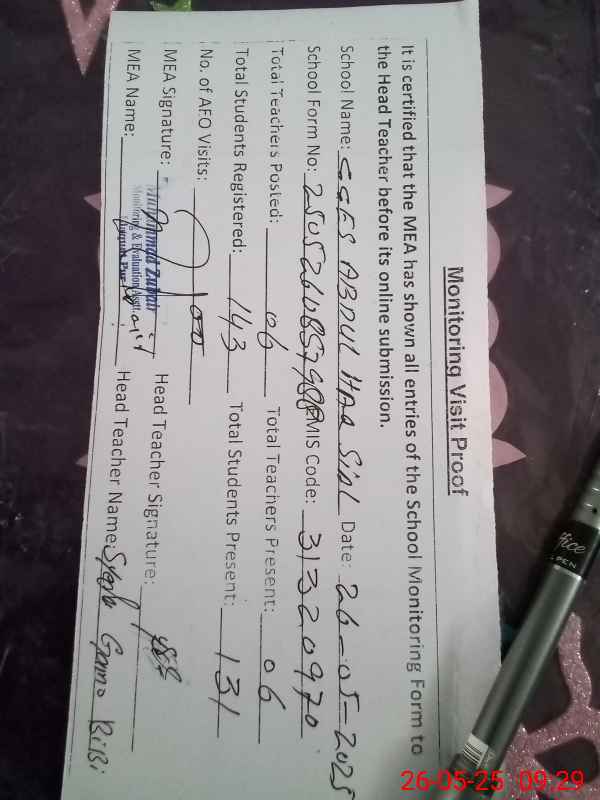 Monitoring Visit Proof
It is certified that the MEA has shown all entries of the School Monitoring Form to
the Head Teacher before its online submission.
School Name: GGES ABDUL HAQ SIAL Date: 26-05-2025
School Form No: EMIS Code: 31320970
Total Teachers Posted: 06 Total Teachers Present: 06
Total Students Registered: 143 Total Students Present: 131
No. of AEO Visits:
MEA Signature: Head Teacher Signature:
MEA Name: Head Teacher Name: BiBi
Muhammad Zubair
Monitoring & Evaluation Asstt.
ffice
PEN
26-05-25 09:29